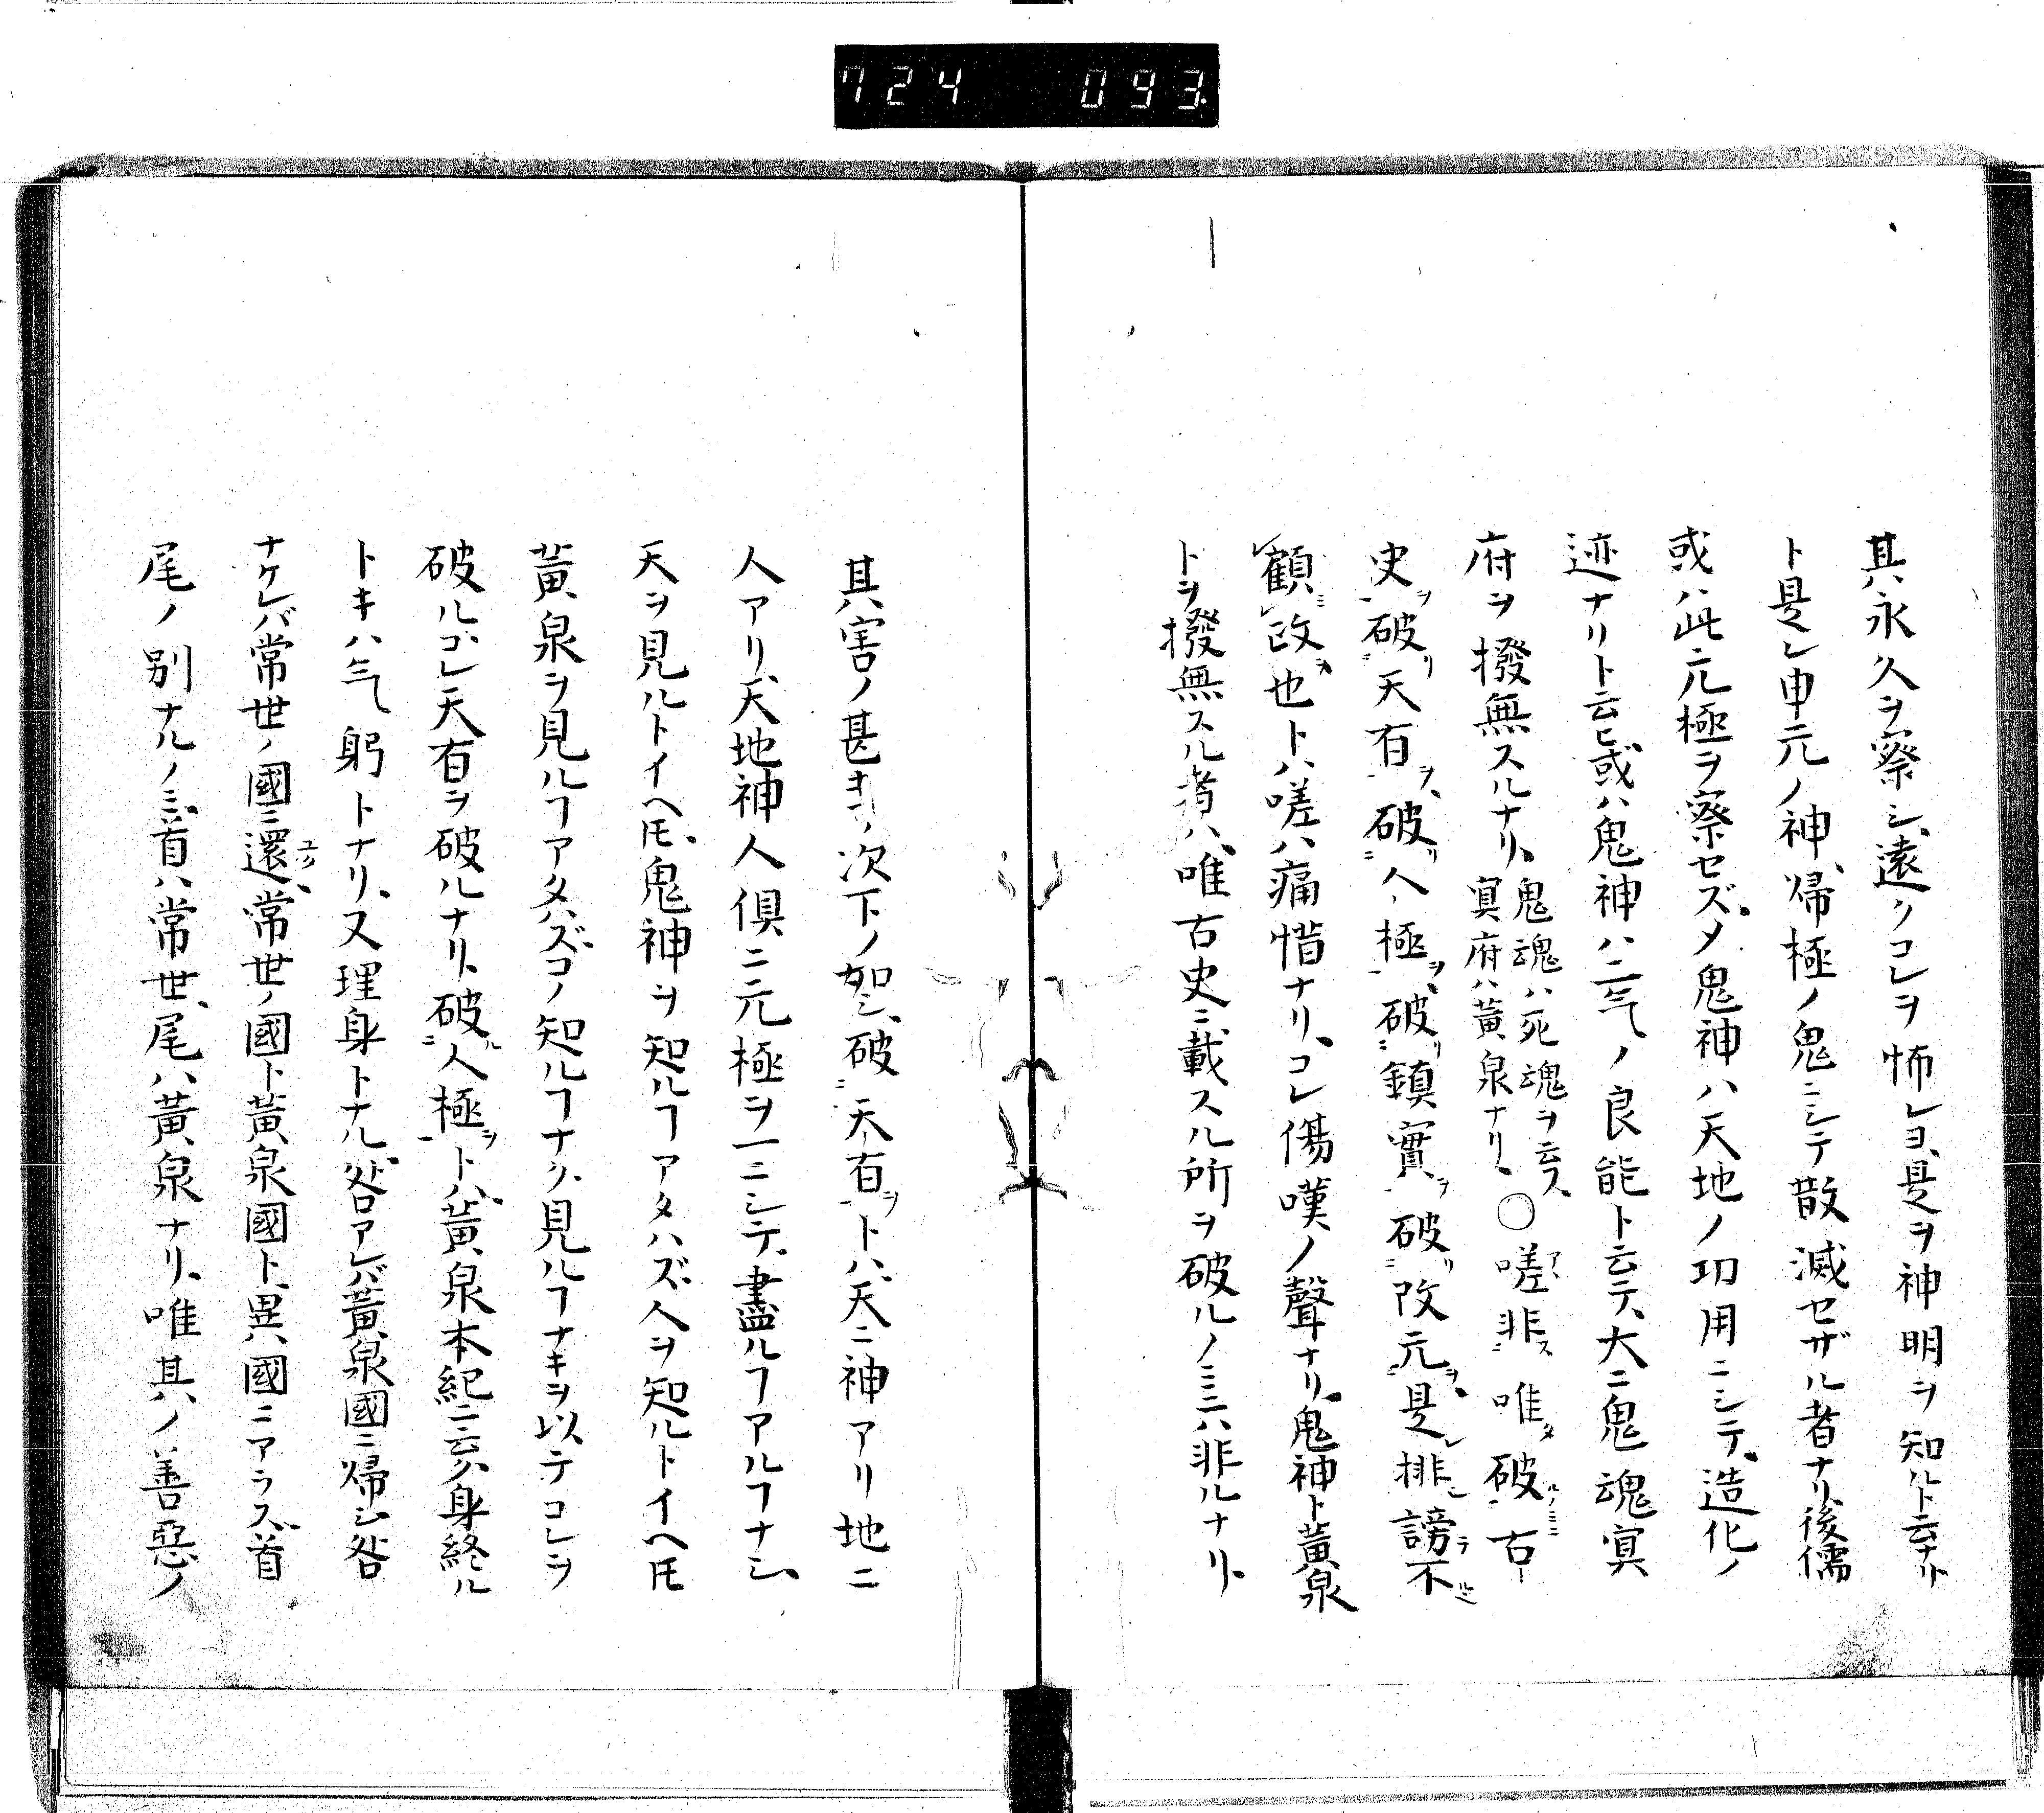 724 093
其永久ヲ察シ、遠クコレヲ怖レヨ、是ヲ神明ヲ知ルト云ナリト
ト是レ申元ノ神、帰極ノ鬼ニシテ散滅セザル者ナリ、後儒
或ハ此元極ヲ察セズメ鬼神ハ天地ノ功用ニシテ、造化ノ
迹ナリト云ヒ或ハ鬼神ハ二气ノ良能ト云テ、大ニ鬼魂冥
府ヲ撥無スルナリ、鬼魂ハ死魂ヲ云ス冥府ハ黄泉ナリ、〇嗟非唯破古
史ヲ破リ天有ヲ、破リ人極ヲ、破リ鎮實ヲ破リ改元ヲ、是レ排シ謗テ不
顧ミ改ヲ也トハ嗟ハ痛惜ナリ、コレ傷嘆ノ聲ナリ、鬼神ト黄泉
トヲ撥無スル者ハ、唯古史ニ載スル所ヲ破ルノミニハ非ルナリ、
其害ノ甚キヿ次下ノ如シ、破天有ヲトハ、天ニ神アリ地ニ
人アリ、天地神人倶ニ元極ヲ一ニシテ、盡ルヿアルヿナシ、
天ヲ見ルトイヘ𪜈、鬼神ヲ知ルヿアタハズ、人ヲ知ルトイヘ𪜈
黄泉ヲ見ルヿアタハズ、コノ知ルヿナク、見ルヿナキヲ以テコレヲ
破ルコレ天有ヲ破ルナリ、破ル人極ヲトハ、黄泉本紀ニ云ク、身終ル
トキハ气躬トナリ、又理身トナル、咎アレバ黄泉國ニ帰シ咎
ナケレバ常世ノ國ニ還ユク、常世ノ國ト黄泉國ト、異國ニアラス、首
尾ノ別ナルノミ、首ハ常世、尾ハ黄泉ナリ、唯其ノ善惡ノ